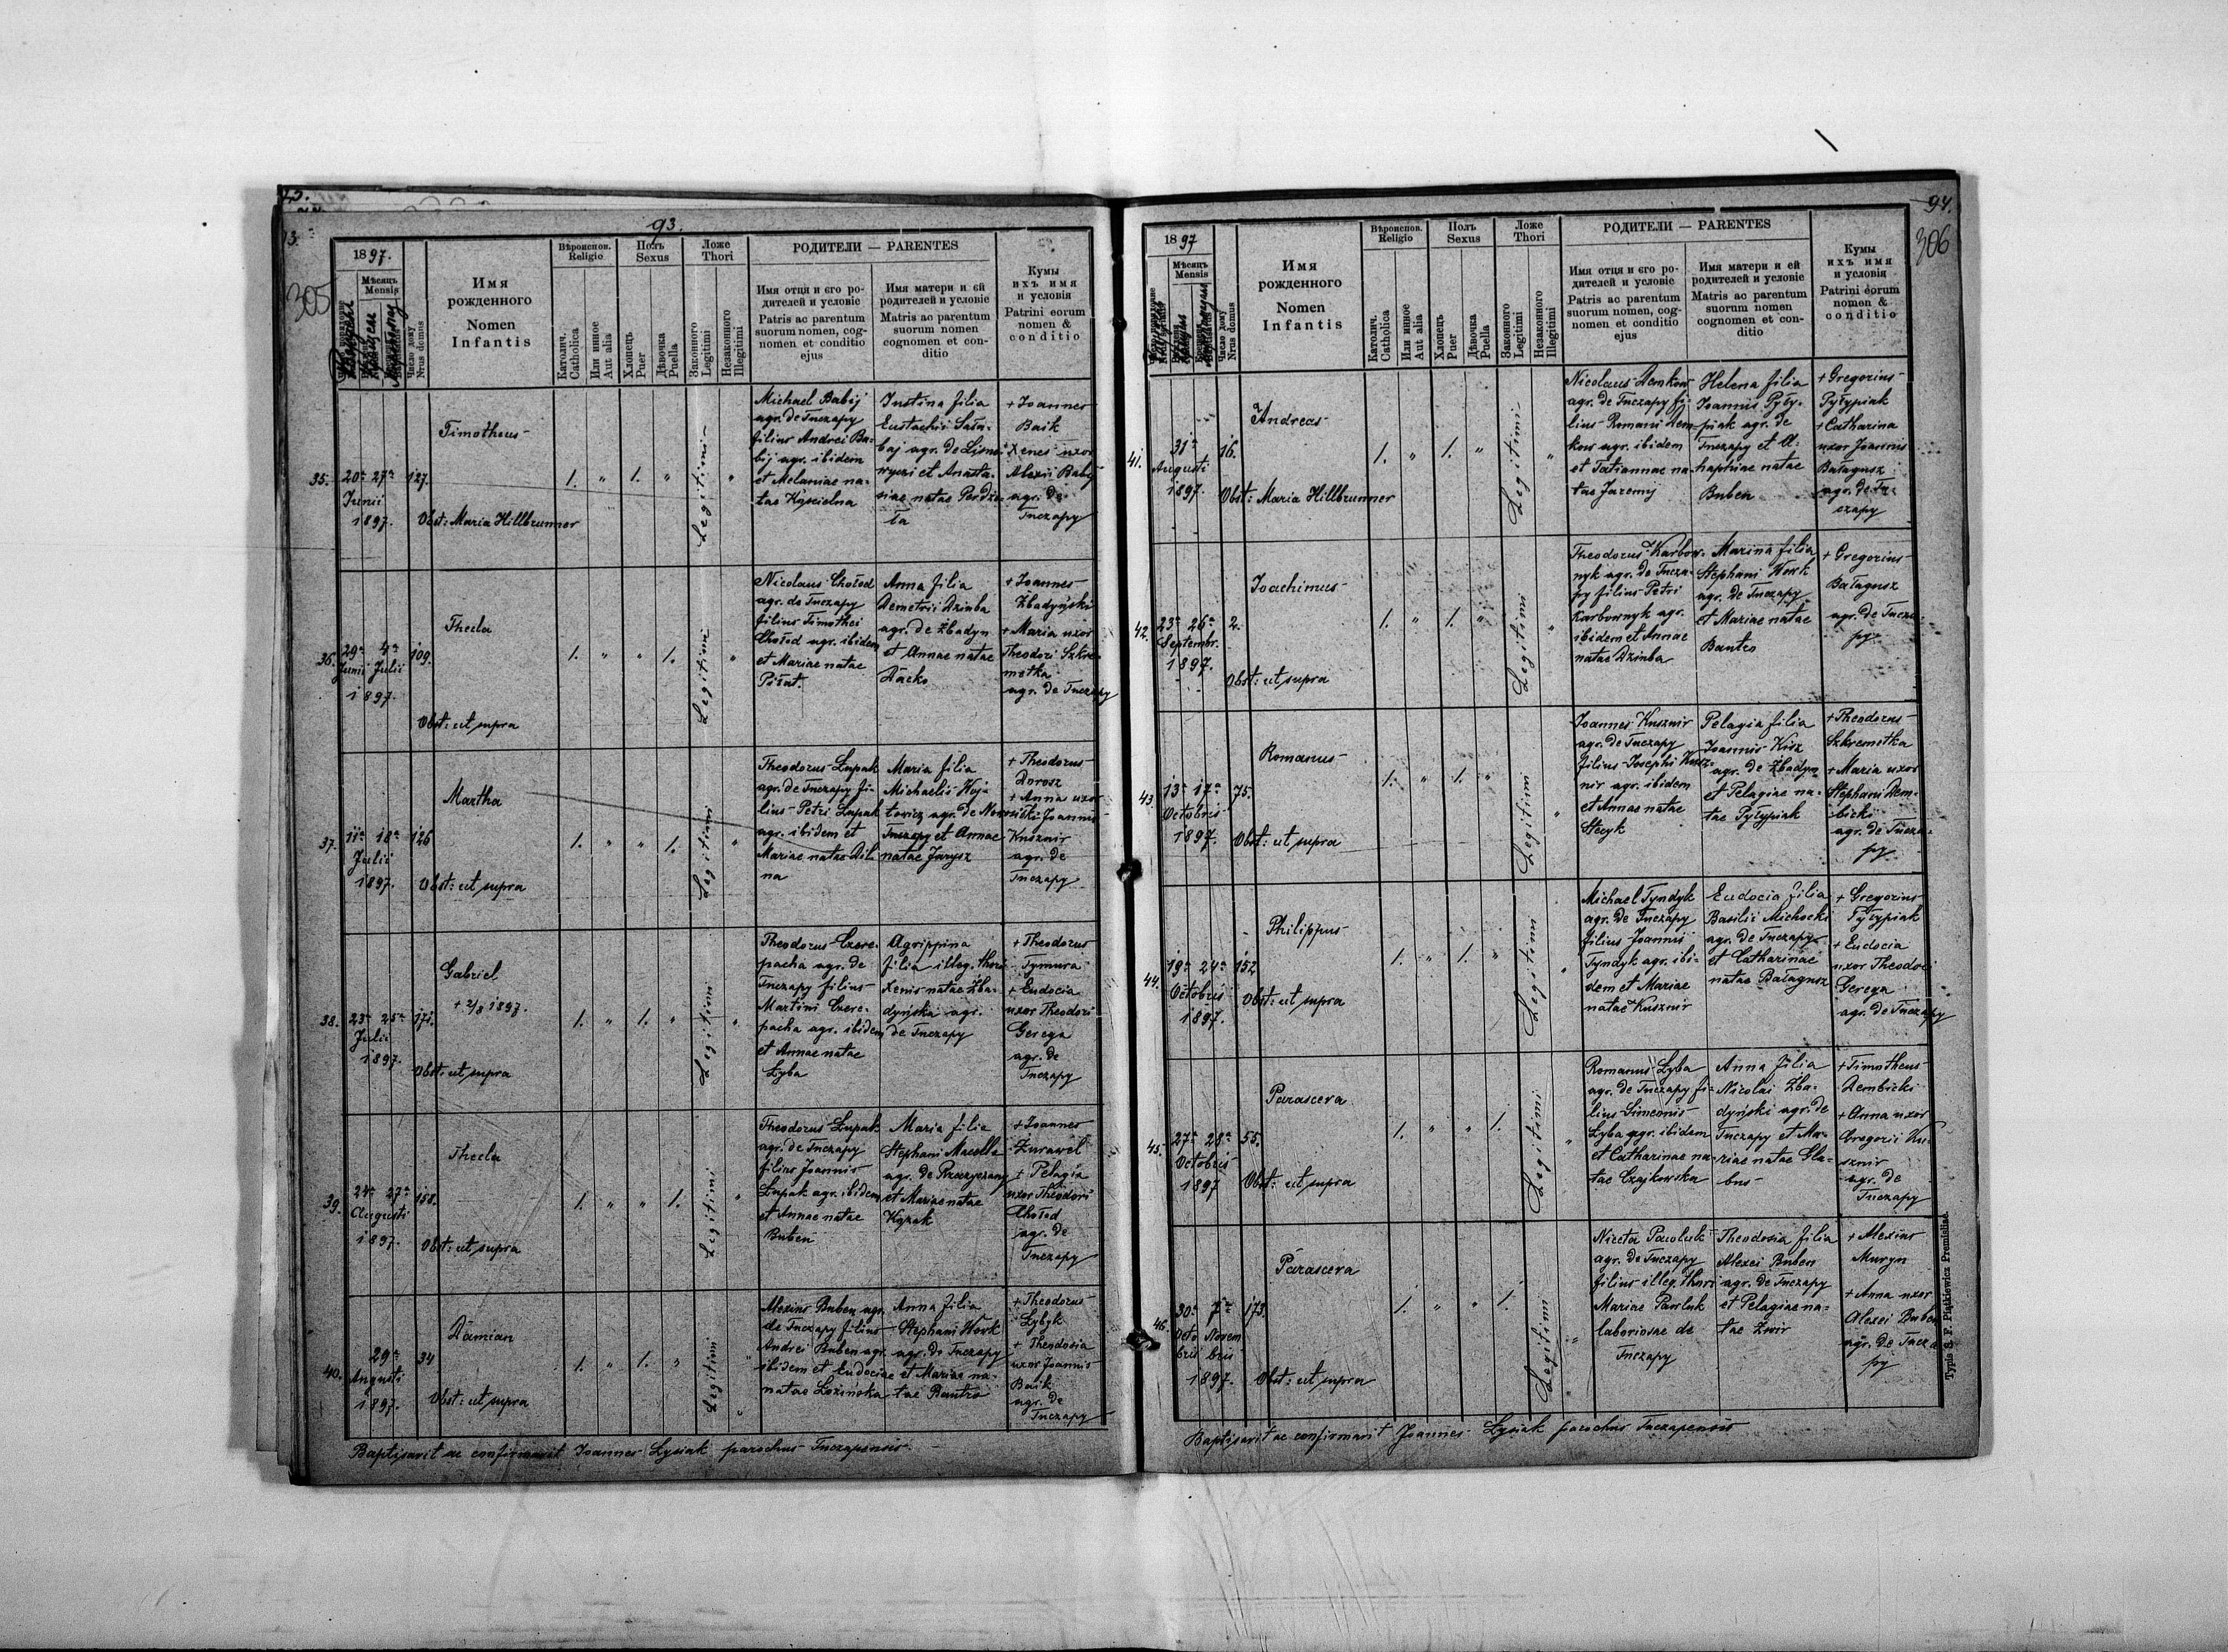 93.
305
1897.
Мѣсяцъ
Mensis
Число дому
Nrus domus
Имя
рожденного
Nomen
Infantis
Вѣроиспов.
Religio
Католич.
Catholica
Или инное
Aut alia
Полъ
Sexus
Хлопець
Puer
Дѣвочка
Puella
Ложе
Thori
Законного
Legitimi
Незаконного
Illegitimi
РОДИТЕЛИ — PARENTES
Имя отця и єго ро-
дителей и условіе
Patris ac parentum
suorum nomen, cog-
nomen et conditio
ejus
Имя матери и єй
родителей и условіе
Matris ac parentum
suorum nomen
cognomen et con-
ditio
Кумы
ихъ имя
и условія
Patrini eorum
nomen &
conditio
35.
20ª 27ª
Junii
1897.
127.
Timotheus
Obst: Maria Hillbrunner
1. " 1. "
Legitimi
"
Michael Babij
agr. de Tuczapy
filius Andrei Ba-
bij agr. ibidem
et Melaniae na-
tae Kyscielna
Justina filia
Eustachii Sała-
baj agr. de
et Anasta-
siae natae
+ Joannes
Baik
+ Xenes uxor
Alexii Babij
agr. de
Tuczapy
36.
29ª 4ª
Junii Julii
1897.
109.
Thecla
Obst: ut supra
1. " " 1.
Legitimi
"
Nicolaus Chołod
agr. de Tuczapy
filius Timothei
Chołod agr. ibidem
et Mariae natae
Piłat.
Anna filia
Demetrii Dziuba
agr. de Zbadyn
et Annae natae
Dacko
+ Joannes
Zbadyński
+ Maria uxor
Theodori Szkre-
metka
agr. de Tuczapy
37.
11ª 18ª
Julii
1897.
126
Martha
Obst: ut supra
1. " " 1.
Legitimi
"
Theodorus Łupak
agr. de Tuczapy fi-
lius Petri Łupak
agr. ibidem et
Mariae natae Dil-
na
Maria filia
Michaelis Woj-
towicz agr. de
Tuczapy et Annae
natae Jarysz
+ Theodorus
Dorosz
+ Anna uxor
Joannis
Kusznir
agr. de
Tuczapy
38.
23ª 25ª
Julii
1897.
171.
Gabriel
+ 2/8 1897.
Obst: ut supra
1. " 1. "
Legitimi
"
Theodorus Czere-
pacha agr. de
Tuczapy filius
Martini Czere-
pacha agr. ibidem
et Annae natae
Łyba
Agrippina
filia illeg. thori
Xenis natae Zba-
dyńska agr.
de Tuczapy
+ Theodorus
Tymura
+ Eudocia
uxor Theodori
Gerega
agr. de
Tuczapy
39.
24ª 27ª
Augusti
1897.
158.
Thecla
Obst: ut supra
1. " " 1.
Legitimi
"
Theodorus Łupak
agr. de Tuczapy
filius Joannis
Łupak agr. ibidem
et Annae natae
Buben
Maria filia
Stephani Macella
agr. de
et Mariae natae
Kozak
+ Joannes
Żurawel
+ Pelagia
uxor Theodori
Chołod
agr. de
Tuczapy
40.
29ª
Augusti
1897.
34
Damian
Obst: ut supra
1. " 1. "
Legitimi
"
Alexius Buben agr.
de Tuczapy filius
Andrei Buben agr.
ibidem et Eudociae
natae Łozińska
Anna filia
Stephani Wowk
agr. de Tuczapy
et Mariae na-
tae Bantro
+ Theodorus
Łybyk
+ Theodosia
uxor Joannis
Baik
agr. de
Tuczapy
Baptisavit ac confirmavit Joannes Łysiak parochus Tuczapensis.
94.
306
1897
Мѣсяцъ
Mensis
Число дому
Nrus domus
Имя
рожденного
Nomen
Infantis
Вѣроиспов.
Religio
Католич.
Catholica
Или инное
Aut alia
Полъ
Sexus
Хлопець
Puer
Дѣвочка
Puella
Ложе
Thori
Законного
Legitimi
Незаконного
Illegitimi
РОДИТЕЛИ — PARENTES
Имя отця и єго ро-
дителей и условіе
Patris ac parentum
suorum nomen, cog-
nomen et conditio
ejus
Имя матери и ей
родителей и условіе
Matris ac parentum
suorum nomen
cognomen et con-
ditio
Кумы
ихъ имя
и условія
Patrini eorum
nomen &
conditio
41.
31ª
Augusti
1897.
16.
Andreas
Obst: Maria Hillbrunner
1. " 1. "
Legitimi
"
Nicolaus Demkow
agr. de Tuczapy fi-
lius Romani Dem-
kow agr. ibidem
et Tatiannae na-
tae Jaremij
Helena filia
Joannis Pyły-
piak agr. de
Tuczapy et A-
haphiae natae
Buben
+ Gregorius
Pyłypiak
+ Catharina
uxor Joannis
Bałagusz
agr. de Tu-
czapy
42.
23ª 26ª
Septembr.
1897.
2.
Joachimus
Obst: ut supra
1. " 1. "
Legitimi
"
Theodorus Karbow-
nyk agr. de Tucza-
py filius Petri
Karbownyk agr.
ibidem et Annae
natae Dziuba
Marina filia
Stephani Wowk
agr. de Tuczapy
et Mariae natae
Bantro
+ Gregorius
Bałagusz
agr. de Tucza-
py
43.
13ª 17ª
Octobris
1897.
75.
Romanus
Obst: ut supra
1. " 1. "
Legitimi
"
Joannes Kusznir
agr. de Tuczapy
filius Josephi Kusz-
nir agr. ibidem
et Annae natae
Stecyk
Pelagia filia
Joannis Kisz
agr. de Zbadyn
et Pelagiae na-
tae Pyłypiak
+ Theodorus
Szkremetka
+ Maria uxor
Stephani Dem-
bicki
agr. de Tucza-
py
44.
19ª 24ª
Octobris
1897.
152
Philippus
Obst: ut supra
1. " 1. "
Legitimi
"
Michael Tyndyk
agr. de Tuczapy
filius Joannis
Tyndyk agr. ibi-
dem et Mariae
natae Kusznir
Eudocia filia
Basilii Michocki
agr. de Tuczapy
et Catharinae
natae Bałagusz
+ Gregorius
Pyłypiak
+ Eudocia
uxor Theodori
Gerega
agr. de Tuczapy
45.
27ª 28ª
Octobris
1897
55.
Parasceva
Obst: ut supra
1. " " 1.
Legitimi
"
Romanus Łyba
agr. de Tuczapy fi-
lius Simeonis
Łyba agr. ibidem
et Catharinae na-
tae Czajkowska
Anna filia
Nicolai Zba-
dyński agr. de
Tuczapy et Ma-
riae natae Hla-
bus
+ Timotheus
Dembicki
+ Anna uxor
Gregorii Ku-
sznir
agr. de
Tuczapy
46.
30ª 7ª
Octo Novem
bris bris
1897.
173.
Parasceva
Obst: ut supra
1. " " 1.
Legitimi
"
Niceta Pawluk
agr. de Tuczapy
filius illeg. thori
Mariae Pawluk
laboriosae de
Tuczapy
Theodosia filia
Alexei Buben
agr. de Tuczapy
et Pelagiae na-
tae Zwir
+ Alexius
Muryn
+ Anna uxor
Alexei Buben
agr. de Tucza-
py
Baptisavit ac confirmavit Joannes Łysiak parochus Tuczapensis
Typis S. F. Piątkiewicz Premisliae.